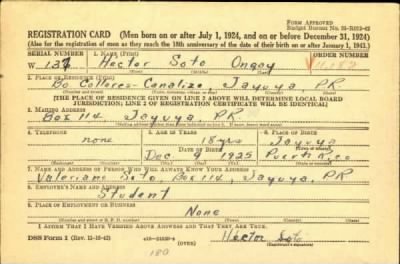 FORM APPROVED
Budget Bureau No. 33-R012-42
REGISTRATION CARD (Men born on or after July 1, 1924, and on or before December 31, 1924)
(Also for the registration of men as they reach the 18th anniversary of the date of their birth on or after January 1, 1943.)
SERIAL NUMBER 1. NAME (Print) ORDER NUMBER
W 137 Hector Soto Ongay
(First) (Middle) (Last)
2. PLACE OF RESIDENCE (Print)
Bo Collores-Canalizo, Jayuya, P.R.
[THE PLACE OF RESIDENCE GIVEN ON LINE 2 ABOVE WILL DETERMINE LOCAL BOARD
JURISDICTION; LINE 2 OF REGISTRATION CERTIFICATE WILL BE IDENTICAL]
3. MAILING ADDRESS
Box 114 Jayuya PR
4. TELEPHONE 5. AGE IN YEARS 6. PLACE OF BIRTH
none 18 yrs Jayuya
DATE OF BIRTH
Dec 9 1925 Puerto Rico
(Exchange) (Number) (Mo.) (Day) (Yr.) (State or country)
7. NAME AND ADDRESS OF PERSON WHO WILL ALWAYS KNOW YOUR ADDRESS
Valeriano Soto, Box 114, Jayuya, PR
8. EMPLOYER'S NAME AND ADDRESS
Student
9. PLACE OF EMPLOYMENT OR BUSINESS
None
I AFFIRM THAT I HAVE VERIFIED ABOVE ANSWERS AND THAT THEY ARE TRUE.
DSS Form 1 (Rev. 11-16-42) (OVER) Hector Soto
(Registrant's signature)
180